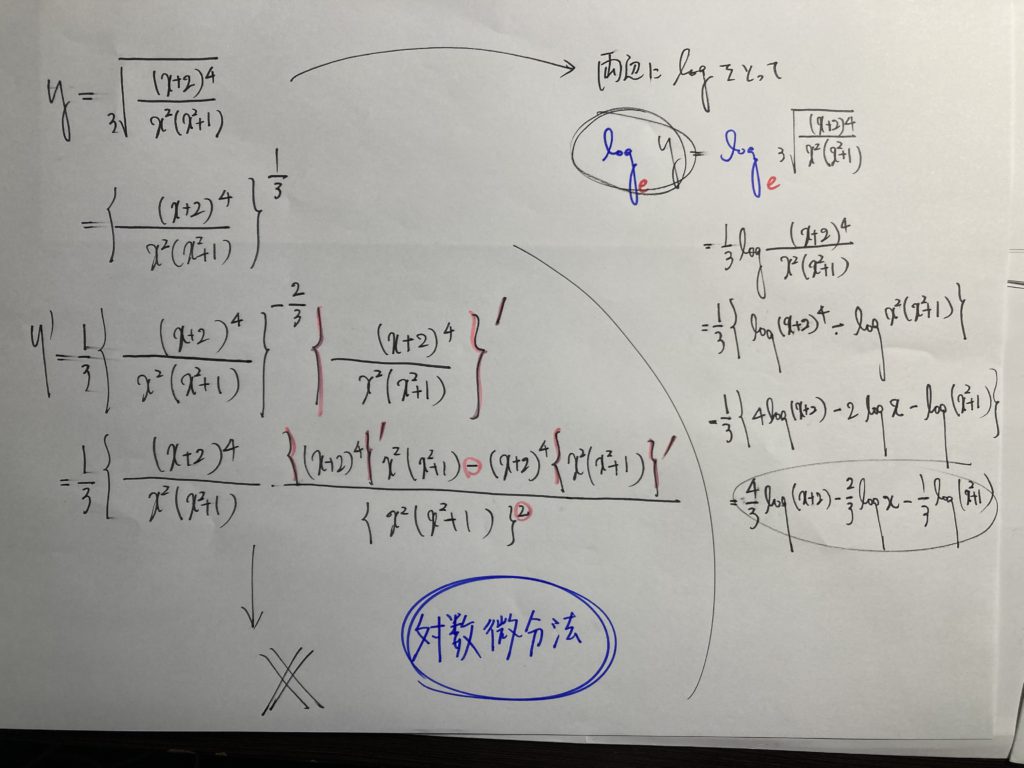 y = ∛((x+2)⁴/(x²(x²+1)))
= {(x+2)⁴/(x²(x²+1))}^(1/3)
y' = 1/3 {(x+2)⁴/(x²(x²+1))}^(-2/3) {(x+2)⁴/(x²(x²+1))}'
= 1/3 {(x+2)⁴/(x²(x²+1)) · ({(x+2)⁴}' x²(x²+1) - (x+2)⁴ {x²(x²+1)}')/({x²(x²+1)}²)
対数微分法
両辺に log をとって
log_e y = log_e ∛((x+2)⁴/(x²(x²+1)))
= 1/3 log (x+2)⁴/(x²(x²+1))
= 1/3 {log(x+2)⁴ - log x²(x²+1)}
= 1/3 {4 log(x+2) - 2 log x - log(x²+1)}
= 4/3 log(x+2) - 2/3 log x - 1/3 log(x²+1)